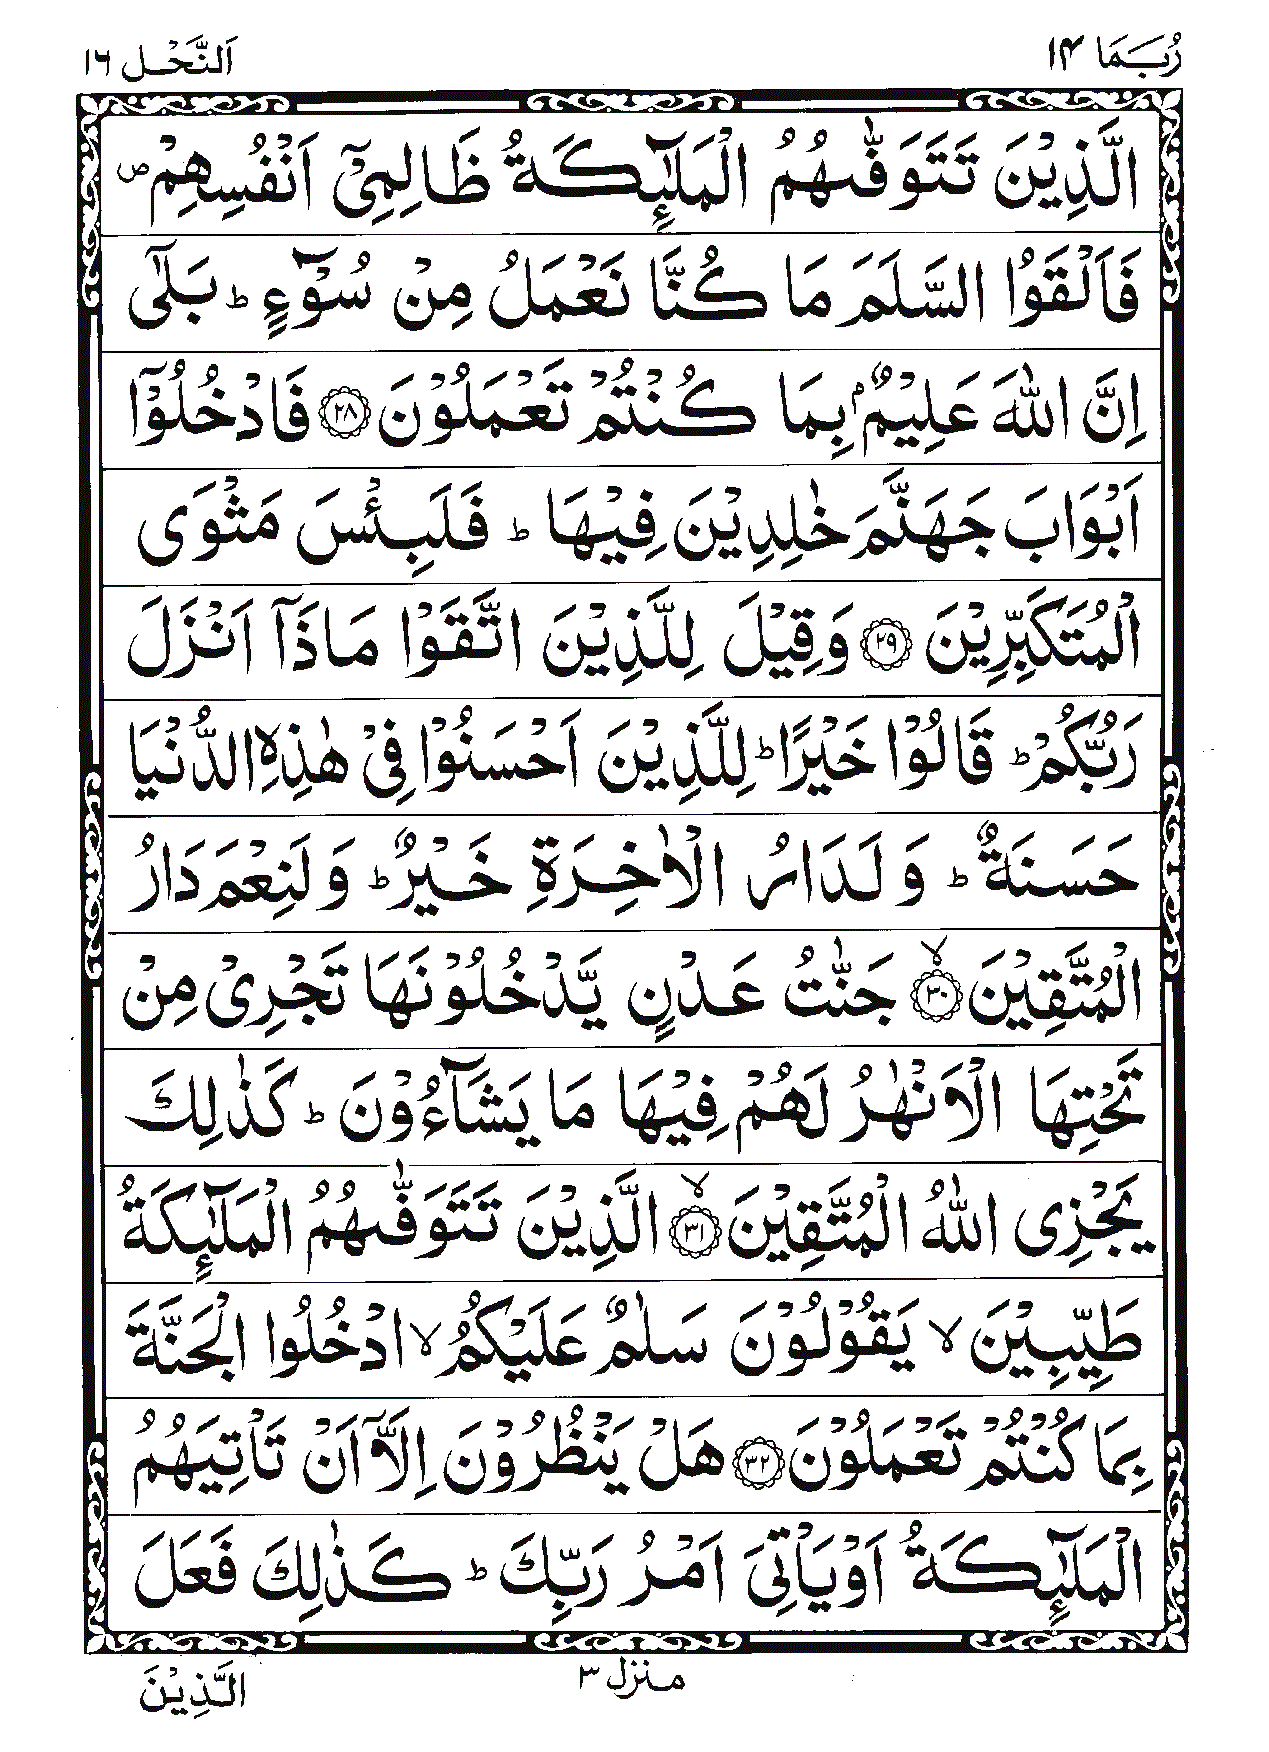 رُبَمَا ١٤
اَلنَّحْل ١٦
الَّذِيْنَ تَتَوَفّٰىهُمُ الْمَلٰٓئِكَةُ ظَالِمِيْۤ اَنْفُسِهِمْ ۪
فَاَلْقَوُا السَّلَمَ مَا كُنَّا نَعْمَلُ مِنْ سُوْٓءٍ ؕ بَلٰۤى
اِنَّ اللّٰهَ عَلِيْمٌۢ بِمَا كُنْتُمْ تَعْمَلُوْنَ ﴿۲۸﴾ فَادْخُلُوْۤا
اَبْوَابَ جَهَنَّمَ خٰلِدِيْنَ فِيْهَا ؕ فَلَبِئْسَ مَثْوَى
الْمُتَكَبِّرِيْنَ ﴿۲۹﴾ وَقِيْلَ لِلَّذِيْنَ اتَّقَوْا مَاذَاۤ اَنْزَلَ
رَبُّكُمْ ؕ قَالُوْا خَيْرًا ؕ لِلَّذِيْنَ اَحْسَنُوْا فِيْ هٰذِهِ الدُّنْيَا
حَسَنَةٌ ؕ وَلَدَارُ الْاٰخِرَةِ خَيْرٌ ؕ وَلَنِعْمَ دَارُ
الْمُتَّقِيْنَ ۙ﴿۳۰﴾ جَنّٰتُ عَدْنٍ يَّدْخُلُوْنَهَا تَجْرِيْ مِنْ
تَحْتِهَا الْاَنْهٰرُ لَهُمْ فِيْهَا مَا يَشَآءُوْنَ ؕ كَذٰلِكَ
يَجْزِى اللّٰهُ الْمُتَّقِيْنَ ۙ﴿۳۱﴾ الَّذِيْنَ تَتَوَفّٰىهُمُ الْمَلٰٓئِكَةُ
طَيِّبِيْنَ ۙ يَقُوْلُوْنَ سَلٰمٌ عَلَيْكُمُ ۙ ادْخُلُوا الْجَنَّةَ
بِمَا كُنْتُمْ تَعْمَلُوْنَ ﴿۳۲﴾ هَلْ يَنْظُرُوْنَ اِلَّاۤ اَنْ تَاْتِيَهُمُ
الْمَلٰٓئِكَةُ اَوْ يَاْتِيَ اَمْرُ رَبِّكَ ؕ كَذٰلِكَ فَعَلَ
منزل ٣
الَّذِيْنَ